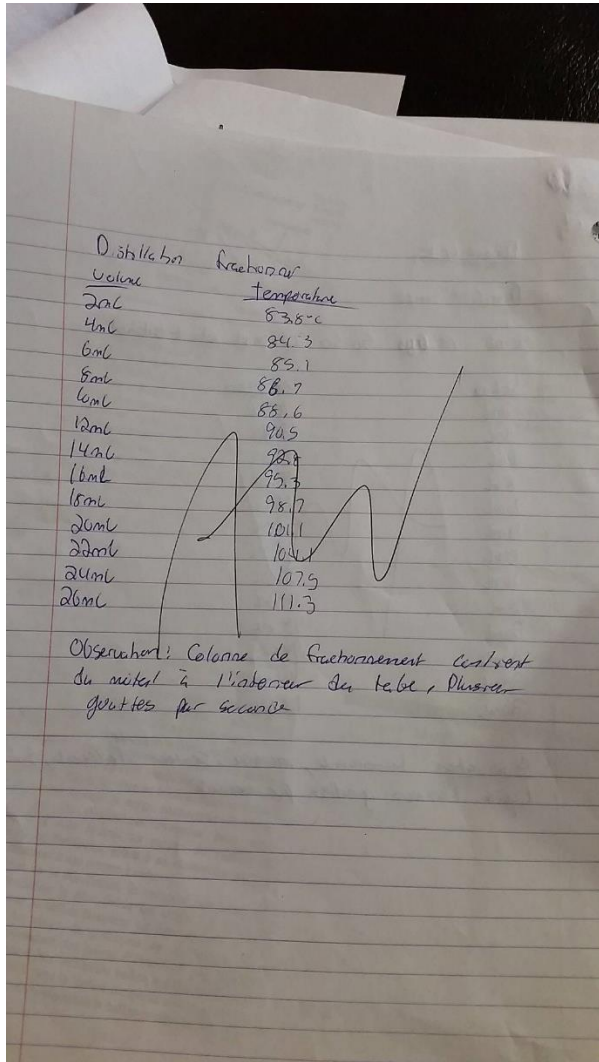 Distillation fractionner
Volume temperature
2mL 83.8°C
4mL 84.3
6mL 85.1
8mL 86.7
10mL 88.6
12mL 90.5
14mL 92.
16mL 95.3
18mL 98.7
20mL 101.1
22mL 104.1
24mL 107.9
26mL 111.3
Observation: Colonne de fractionnement contient
du métal à l'intérieur du tube, Plusieur
gouttes par seconde